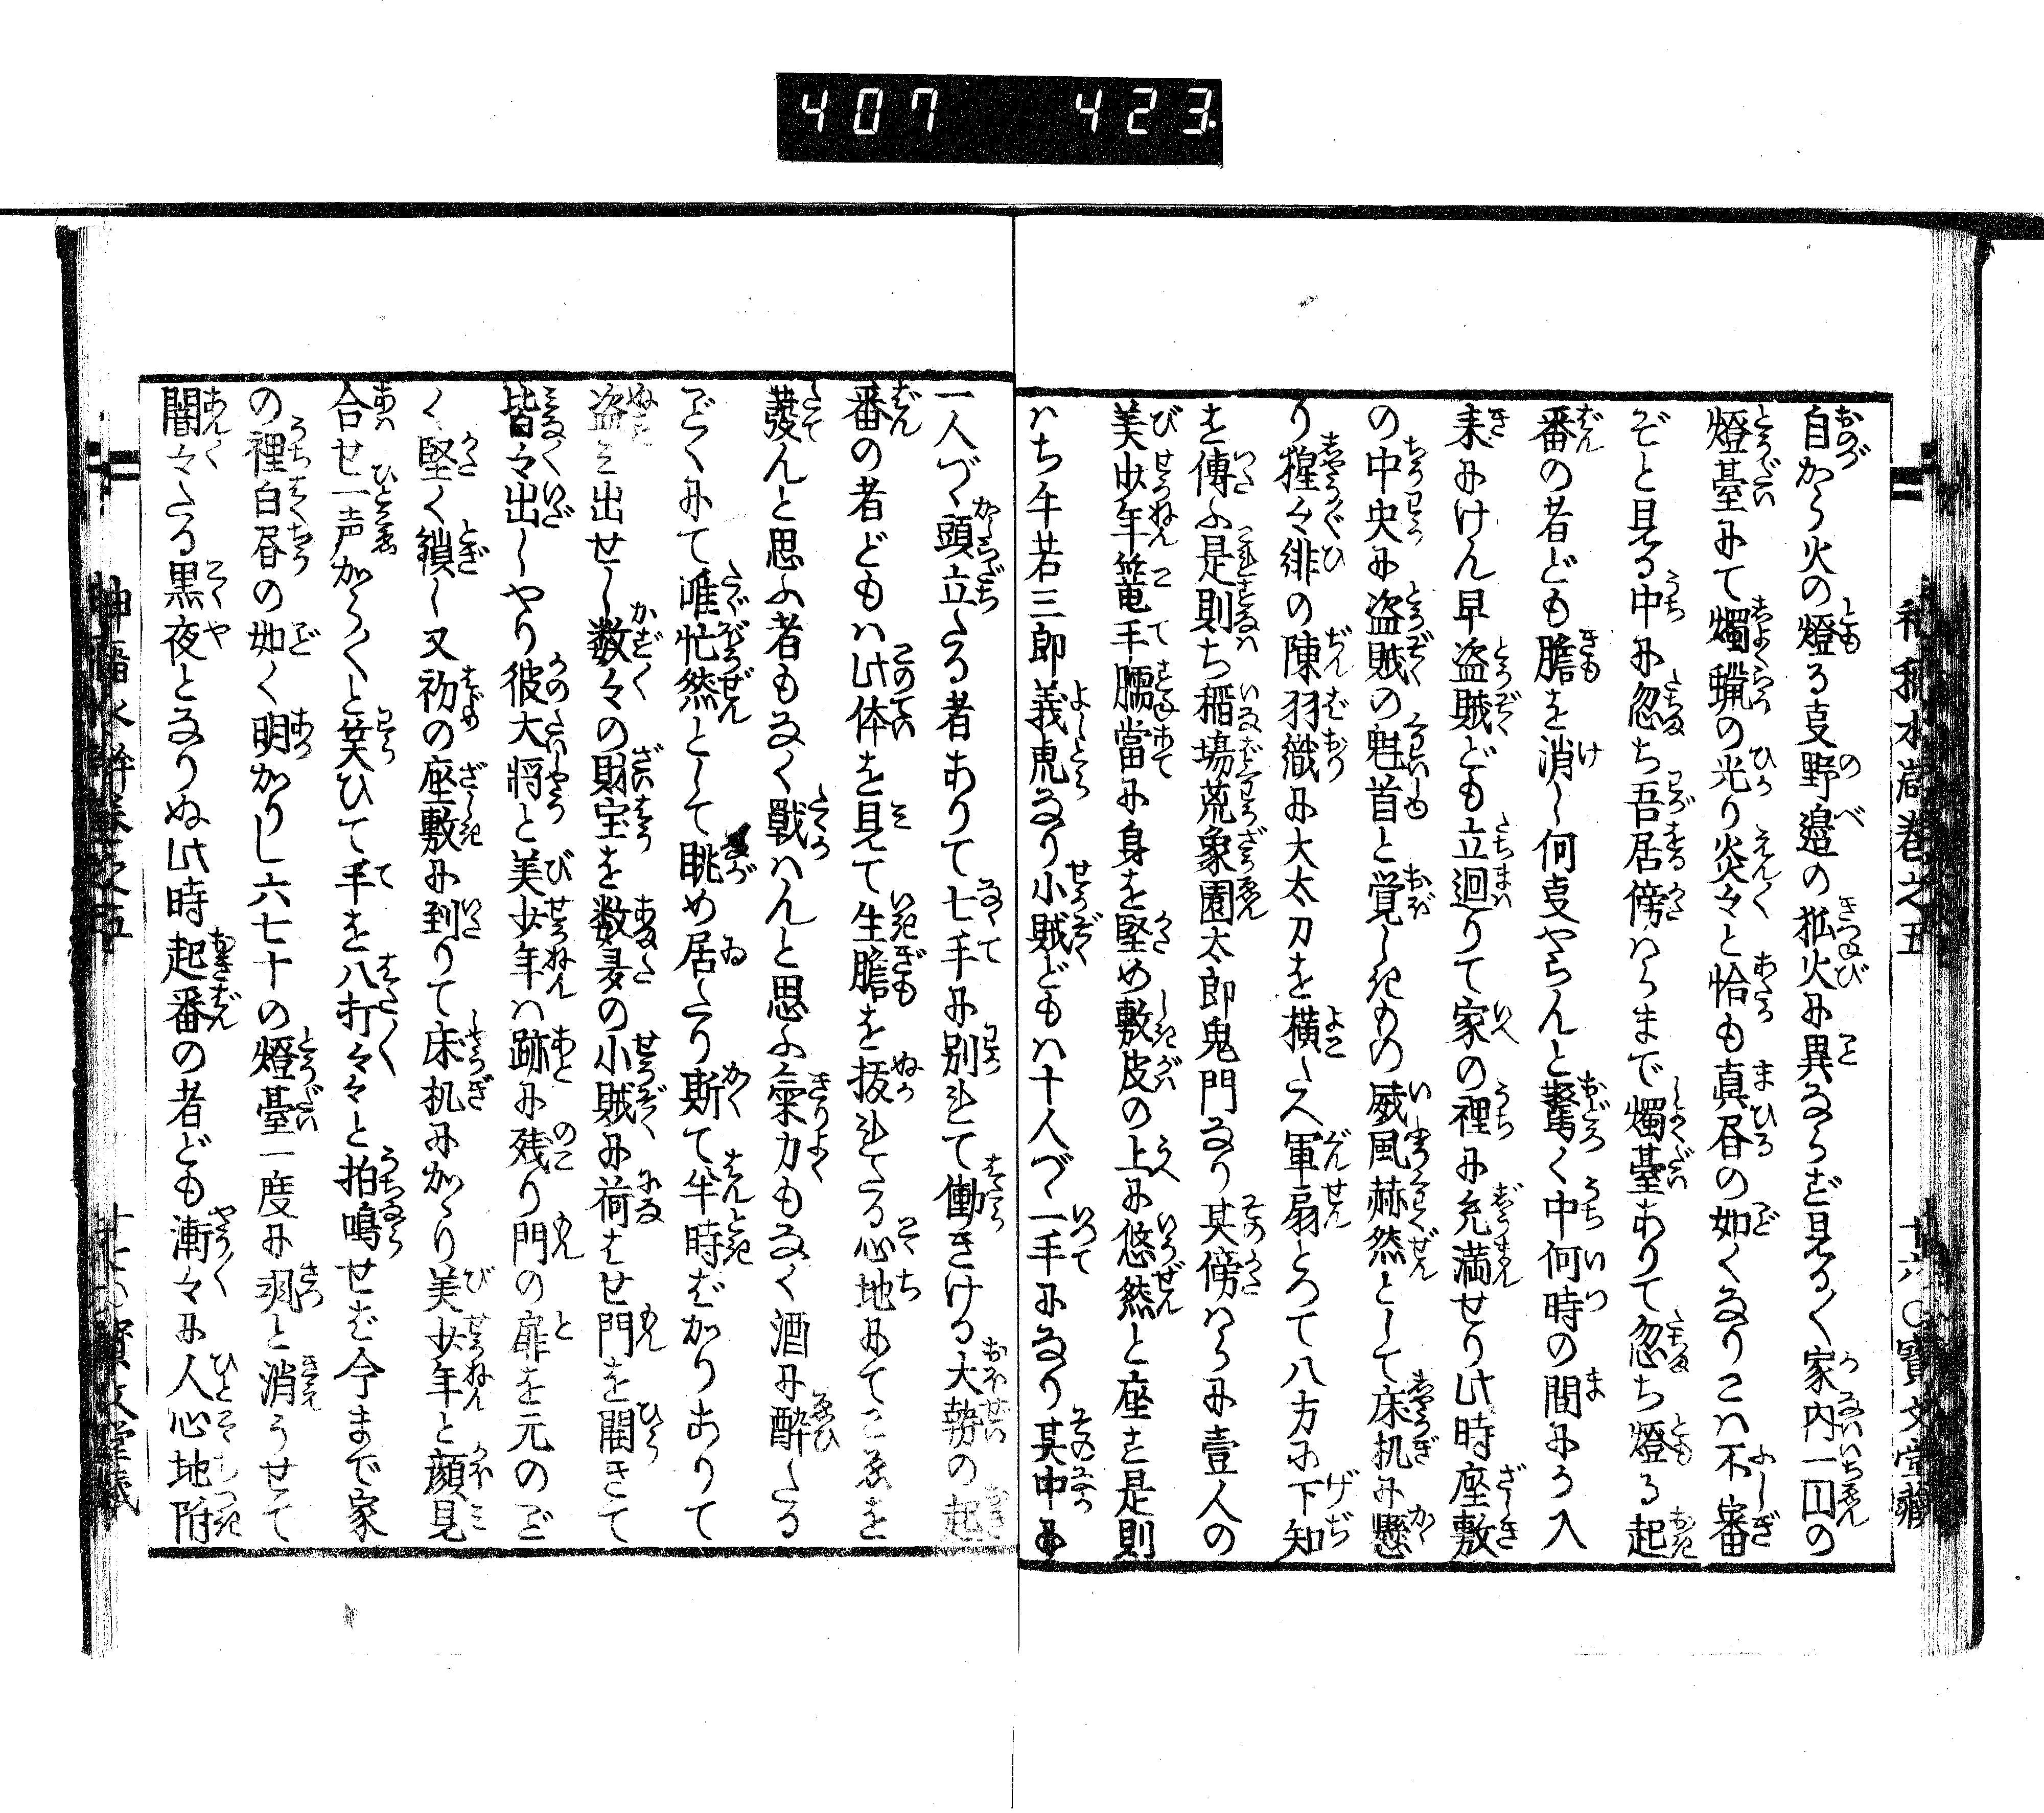 407 423.
自から火の燈る㕝野邉の狐火に異ならず見る〳〵家内一囙の
燈臺にて燭蝋の光り炎々と恰も真昼の如くなりこハ不審
ぞと見る中に忽ち吾居傍ハらまで燭臺ありて忽ち燈る起
番の者ども膽を消し何㕝やらんと驚く中何時の間にか入
来にけん早盗賊ども立迴りて家の裡に充満せり此時座敷
の中央に盗賊の魁首と覚しきもの威風赫然として床机に懸
り猩々緋の陳羽織に大太刀を横たへ軍扇とつて八方に下知
を傳ふ是則ち稲塲荒象園太郎鬼門なり其傍ハらに壹人の
美少年篭手臑當に身を堅め敷皮の上に悠然と座す是則
ハち午若三郎義虎なり小賊どもハ十人づゝ一手になり其中に
一人づゝ頭立たる者ありて七手に別れて働きける大勢の起
番の者どもハ此体を見て生膽を抜れたる心地にてこゑを
發んと思ふ者もなく戰ハんと思ふ氣力もなく酒に酔たる
ごとくにて唯忙然として眺め居たり斯て半時ばかりありて
盗み出せし数々の財宝を数多の小賊に荷はせ門を開きて
皆々出しやり彼大将と美少年ハ跡に残り門の扉を元のご
く堅く鎖し又初の座敷に到りて床机にかゝり美少年と顔見
合せ一声から〳〵と笑ひて手を八打々々と拍鳴せば今まで家
の裡白昼の如く明かりし六七十の燈臺一度に溂と消うせて
闇々たる黒夜となりぬ此時起番の者ども漸々に人心地附
水滸巻之五
十六〇寳文堂藏
巻之五